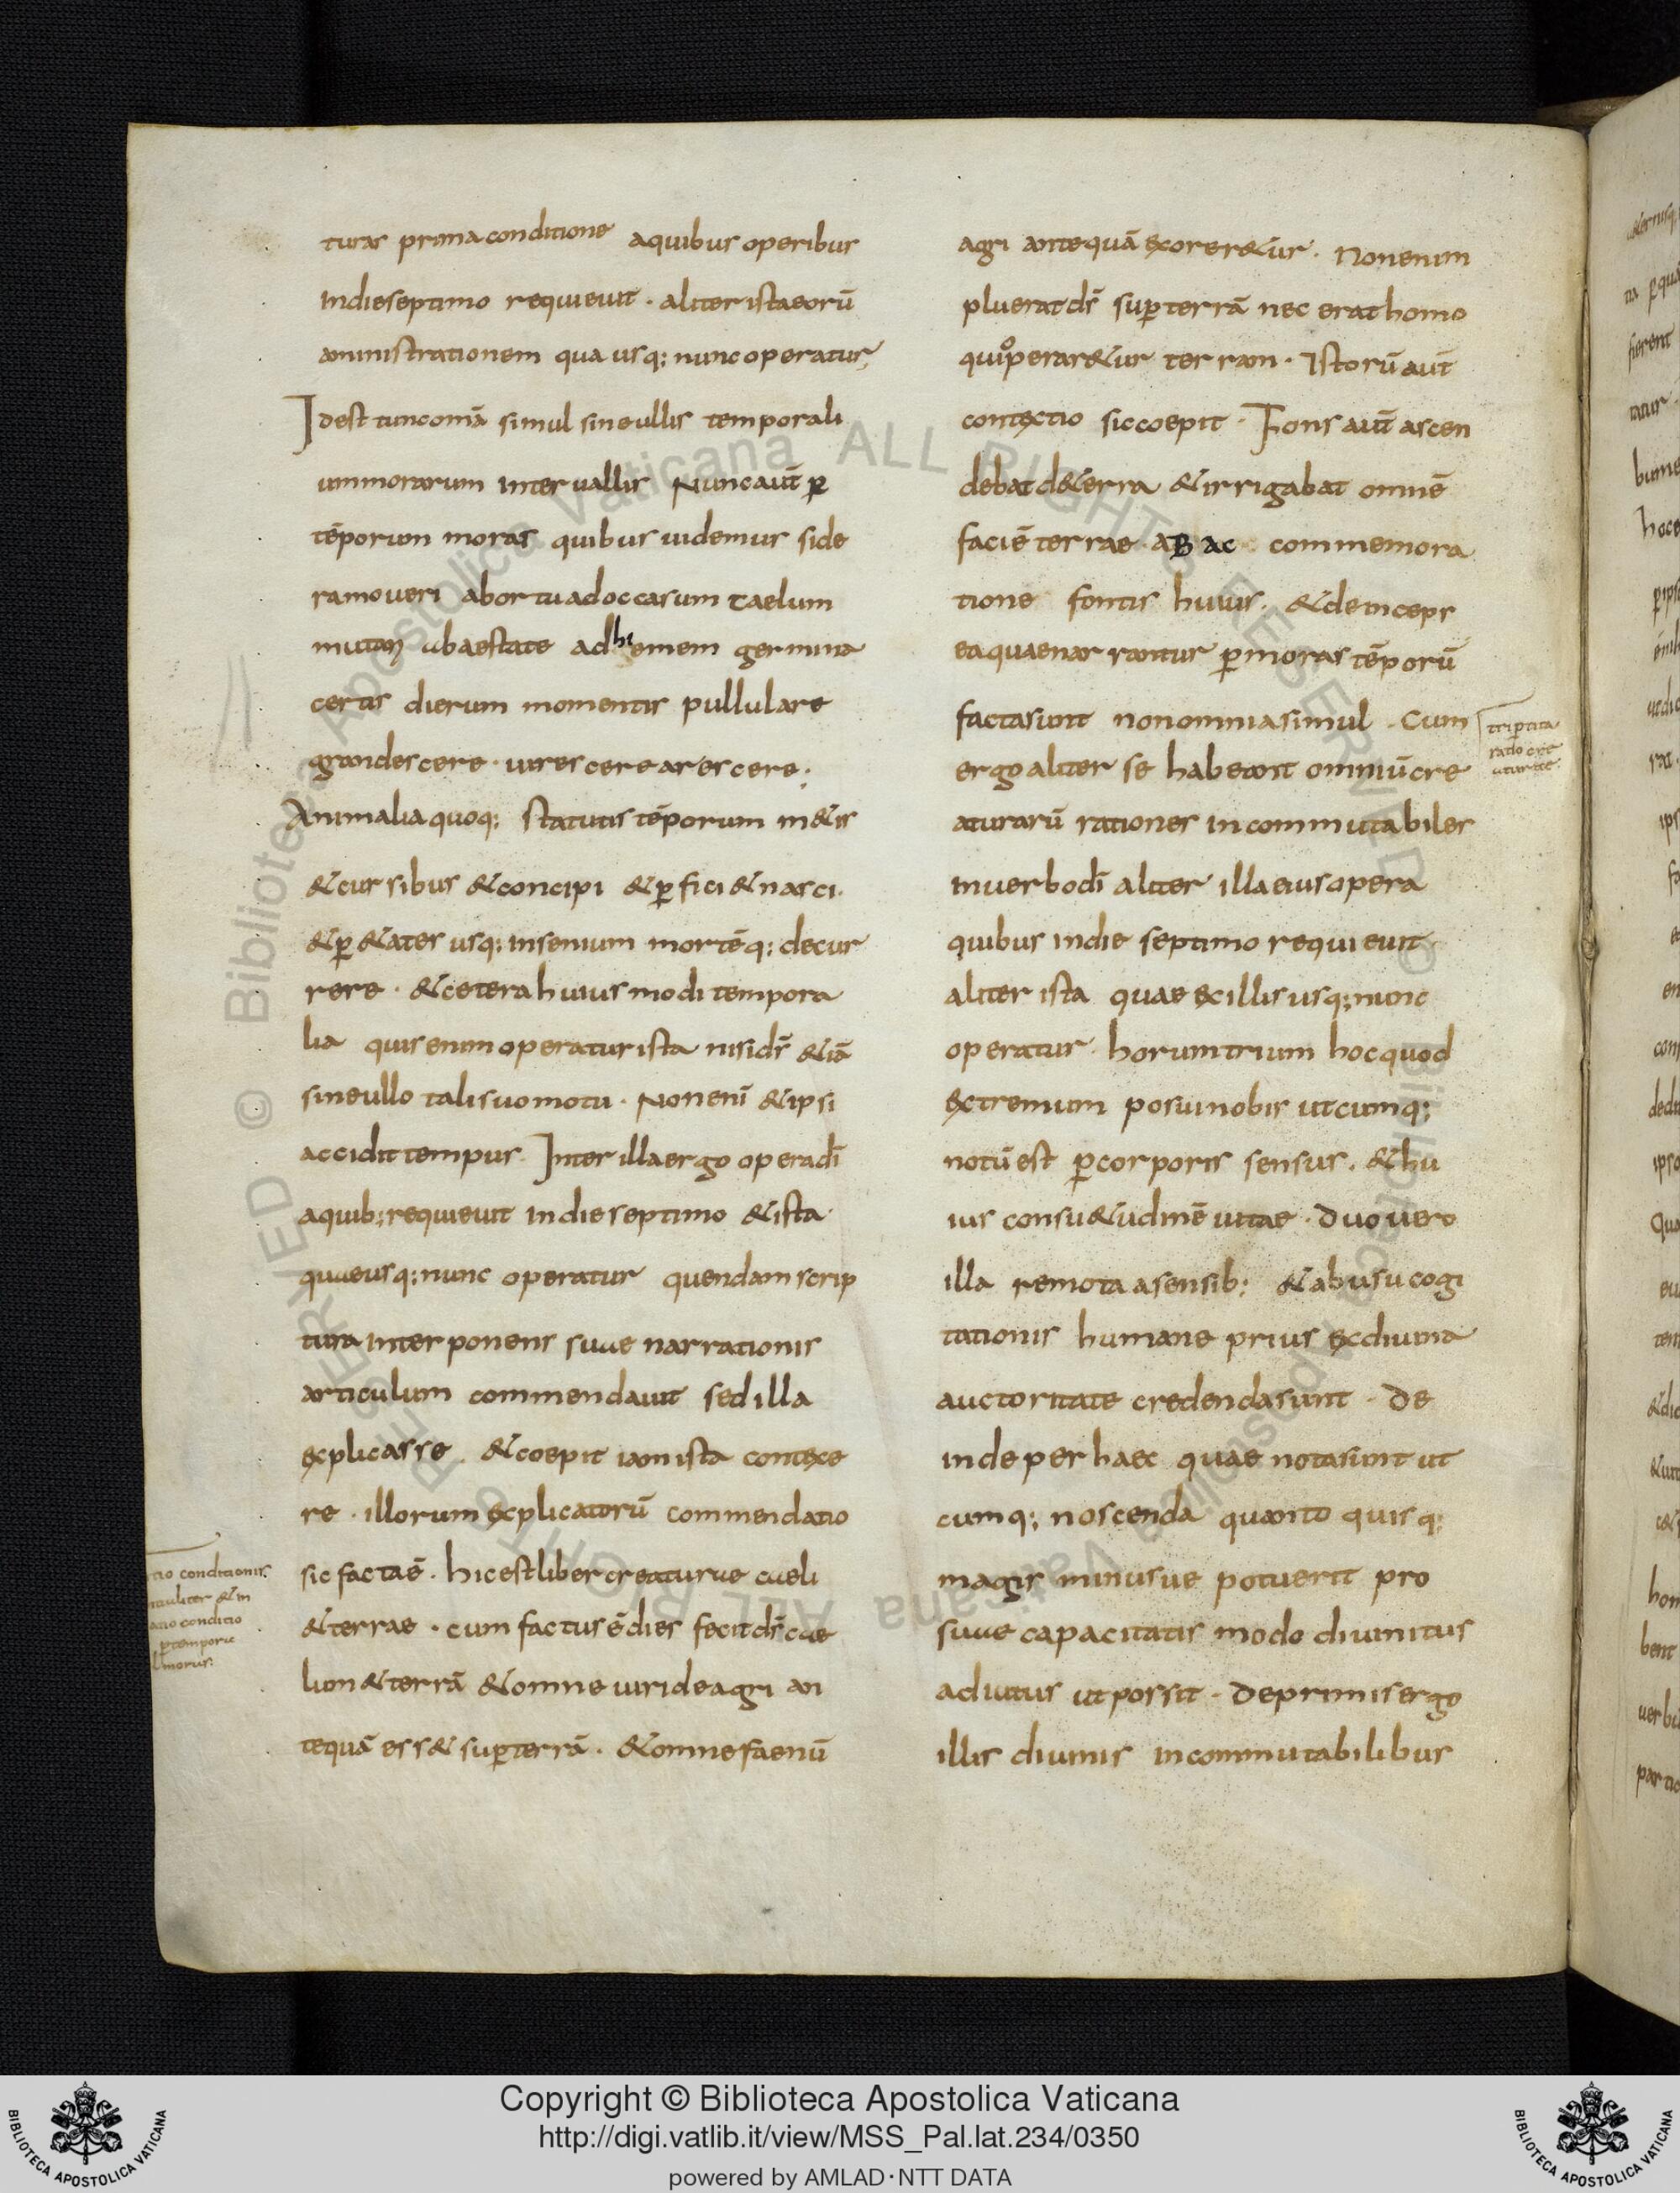 turas prima conditione a quibus operibus
In die septimo requieuit · aliter ista eorū
aministrationem qua usq; nunc operatur;
Idest tunc omā simul sine ullis temporali
um morarum inter uallis Nunc aut̄ ꝑ
tēporum moras quibus uidemus side
ra moueri ab ortu ad occasum caelum
mutari ab aestate ad hiemem germina
certis dierum momentis pullulare
grandescere · uirescere arescere;
Animalia quoq; statutis tēporum metis
& cursibus & concipi & ꝑfici & nasci.
& ꝑ &ates usq; in senium mortēq; decur
rere · & cetera huius modi tempora
lia quis enim operatur ista nisi ds̄ &iā
sine ullo tali suo motu · Non enī & ipsi
accidit tempus Inter illa ergo opera dī
a quib; requieuit in die septimo & ista
quae usq; nunc operatur quendam scrip
tura inter ponens suae narrationis
articulum commendauit sed illa
explicasse & coepit iam ista contexe
re · illorum explicatorū commendatio
sic facta ē · hic est liber creaturae caeli
& terrae · cum factus ē dies fecit ds̄ cae
lum & terrā & omne uiride agri an
tequā ess& suꝑ terrā · & omne faenū
tio conditionis.
& in
conditio
ꝑ tempora
agri antequā exorer&ur · Non enim
pluerat ds̄ suꝑ terrā nec erat homo
qui operar&ur terram · Istorū aut̄
contextio sic coepit · Fons aut̄ ascen
debat d& erra & irrigabat omnē
faciē terrae · aB ac commemora
tione fontis huius. & deinceps
ea quae narrantur ꝑ moras tēporū
facta sunt non omnia simul · Cum
ergo aliter se habeant omniū cre
aturarū rationes incommutabiles
in uerbo dī aliter illa eius opera
quibus in die septimo requieuit
aliter ista quae ex illis usq; nunc
operatur horum trium hoc quod
extremum posui nobis utcumq;
notū est ꝑ corporis sensus. & hu
ius consu&udinē uitae · duo uero
illa remota a sensib; & ab usu cogi
tationis humane prius ex diuina
auctoritate credenda sunt · De
inde per haec quae nota sunt ut
cumq; noscenda quanto quisq;
magis minusue potuerit pro
suae capacitatis modo diuinitus
adiutus ut possit · De primis ergo
illis diuinis incommutabilibus
triptita
ratio cre
aturae
Copyright © Biblioteca Apostolica Vaticana
http://digi.vatlib.it/view/MSS_Pal.lat.234/0350
powered by AMLAD·NTT DATA
BIBLIOTECA APOSTOLICA VATICANA
BIBLIOTECA APOSTOLICA VATICANA
© Biblioteca Apostolica Vaticana ALL RIGHTS RESERVED
© Biblioteca Apostolica Vaticana ALL RIGHTS RESERVED